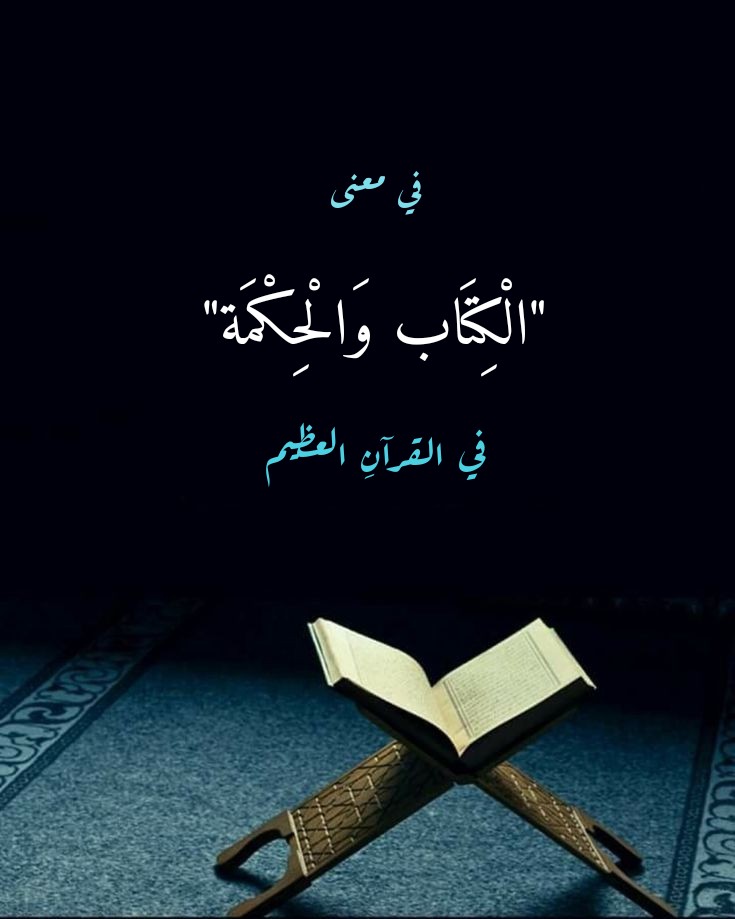 في معنى
"الْكِتَاب وَالْحِكْمَة"
في القرآنِ العظيم